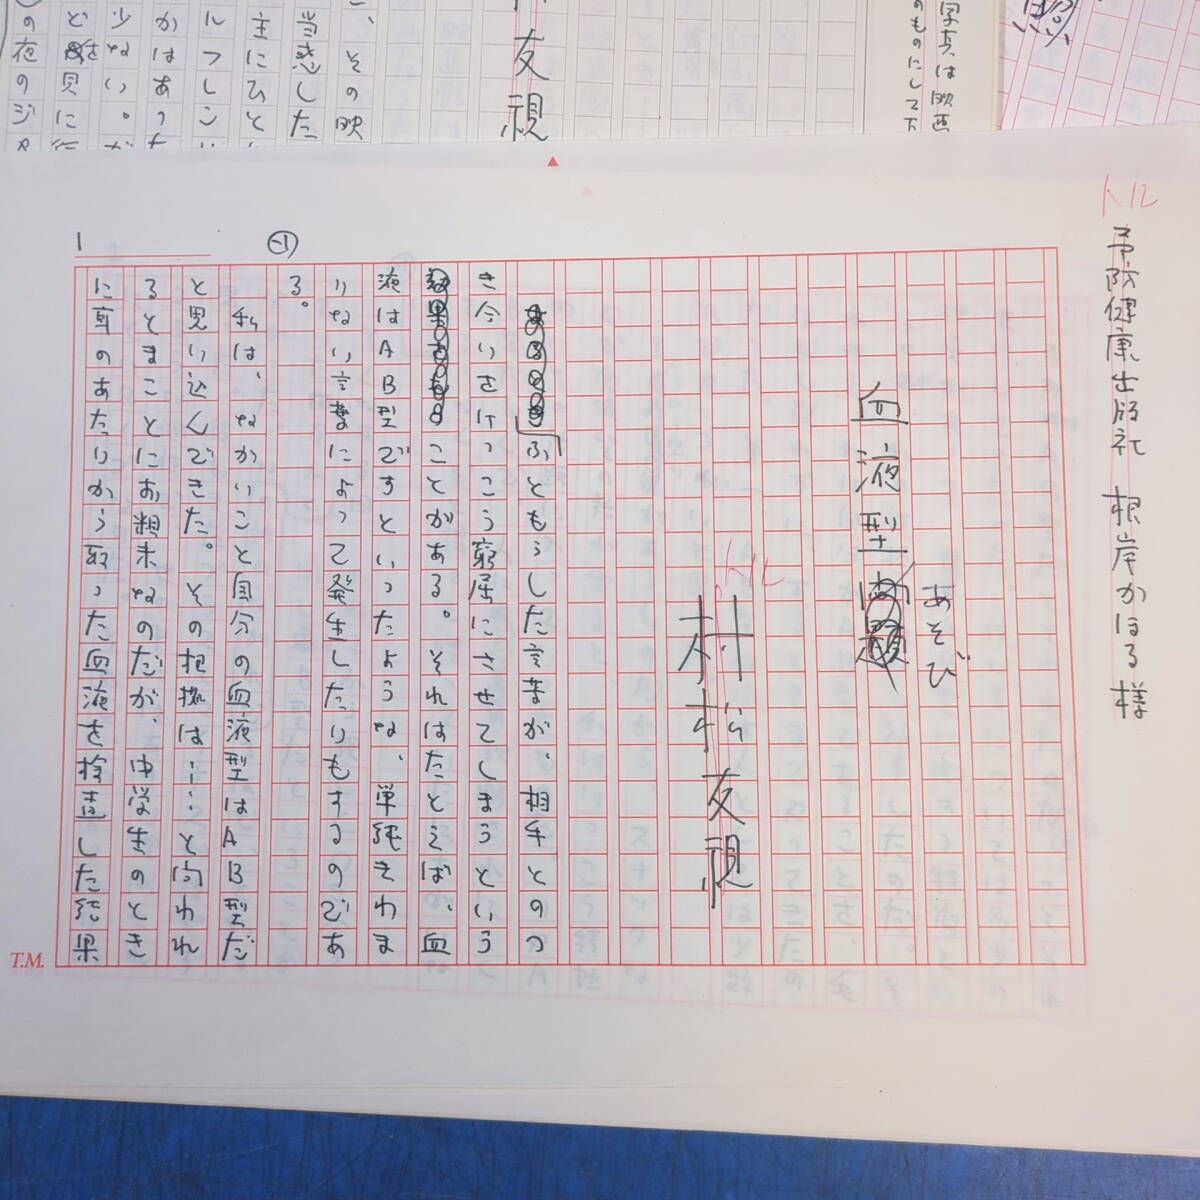 トル
予防健康出版社 根岸かほる様
あそび
血液型
トル
村松友視
ふともらした言葉が、相手とのつ
き合いをけっこう窮屈にさせてしまうという
ことがある。それはたとえば、血
液はAB型ですといったような、単純きわま
りない言葉によって発生したりもするのであ
る。
私は、ながいこと自分の血液型はAB型だ
と思い込んできた。その根拠は……と問われ
るとまことにお粗末なのだが、中学生のとき
に耳のあたりから取った血液を検査した結果
1
T.M.
友視
写真は映画
のものにして下
、その映
当惑した
主にひと
ルフレン
かはあっ
少ない。が
ど
の夜のジ